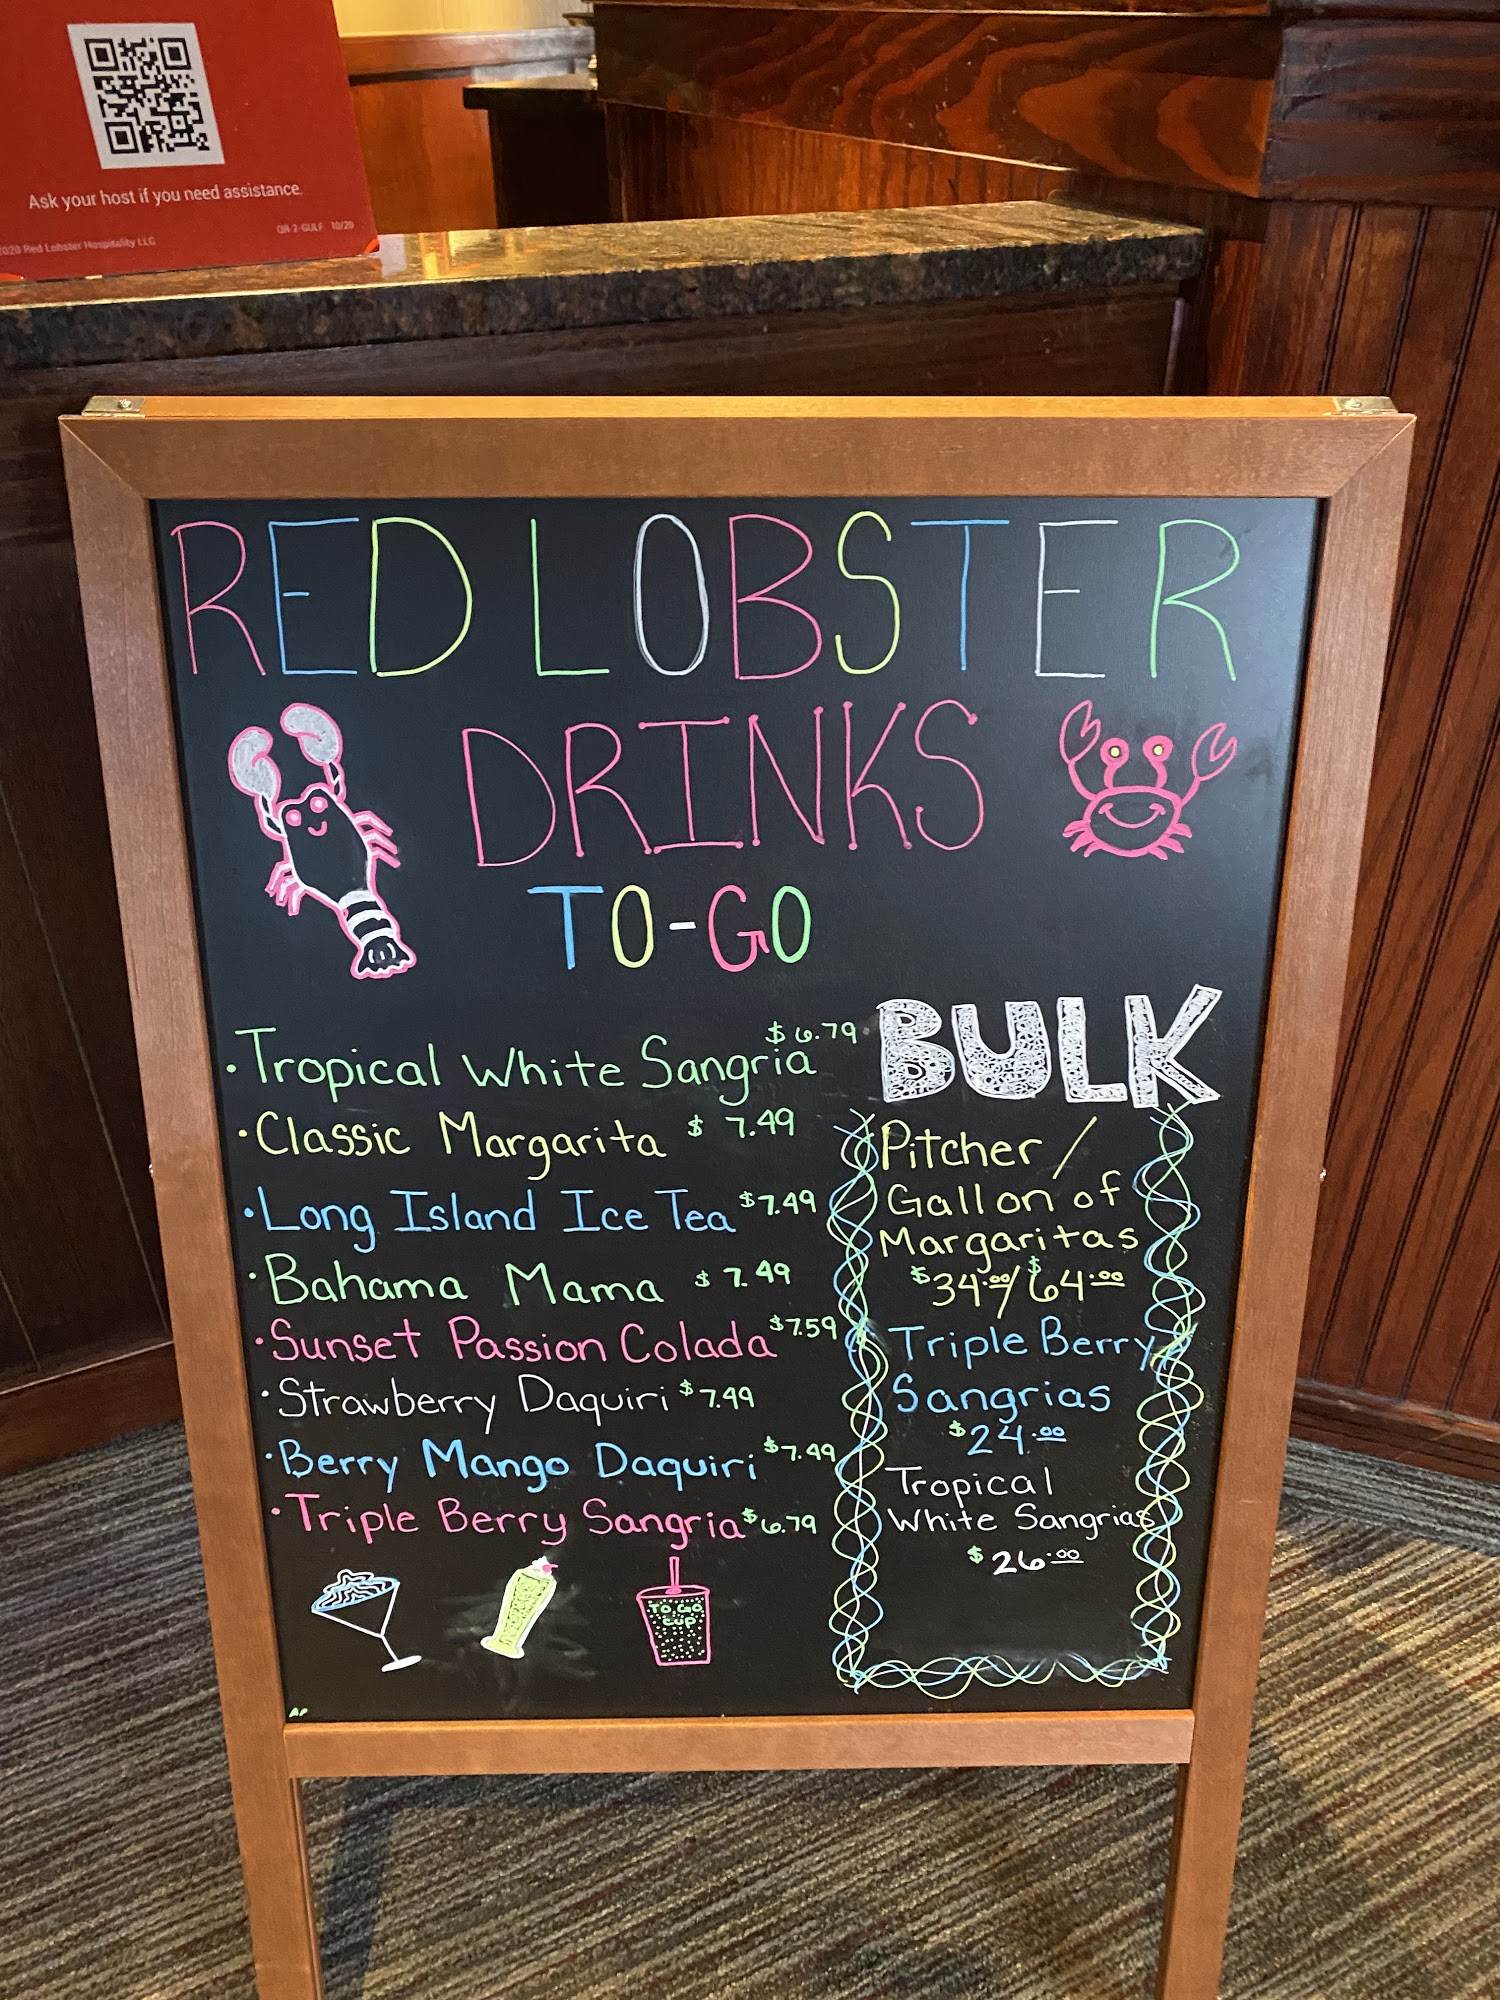 Ask your host if you need assistance.
2020 Red Lobster Hospitality LLC
QR-2-GULF 10/20
RED LOBSTER
DRINKS
TO-GO
· Tropical White Sangria $6.79
· Classic Margarita $7.49
· Long Island Ice Tea $7.49
· Bahama Mama $7.49
· Sunset Passion Colada $7.59
· Strawberry Daquiri $7.49
· Berry Mango Daquiri $7.49
· Triple Berry Sangria $6.79
TO GO
CUP
AP
BULK
Pitcher /
Gallon of
Margaritas
$34.00/$64.00
Triple Berry
Sangrias
$24.00
Tropical
White Sangrias
$26.00